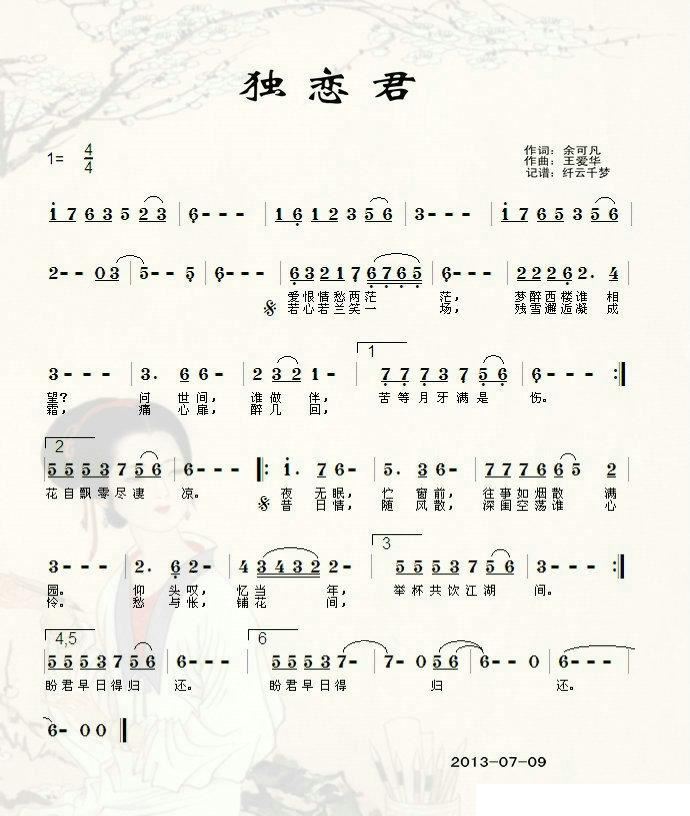 独恋君
1= 4/4
作词：余可凡
作曲：王爱华
记谱：纤云千梦
1 7 6 3 5 2 3 | 6 - - - | 1 6 1 2 3 5 6 | 3 - - - | 1 7 6 5 3 5 6 |
2 - - 0 3 | 5 - - 5 | 6 - - - | 6 3 2 1 7 6 7 6 5 | 6 - - - | 2 2 2 6 2 . 4
爱恨情愁两茫 茫， 梦醉西楼谁 相
若心若兰笑一 场， 残雪邂逅凝 成
3 - - - | 3 . 6 6 - | 2 3 2 1 - | 1 7 7 7 3 7 5 6 | 6 - - - :|
望？ 问 世间， 谁做 伴， 苦等月牙满是 伤。
霜， 痛 心扉， 醉几 回，
2
5 5 5 3 7 5 6 | 6 - - - |: 1 . 7 6 - | 5 . 3 6 - | 7 7 7 6 6 5 2
花自飘零尽凄 凉。 夜 无眠， 伫 窗前， 往事如烟散 满
昔 日情， 随 风散， 深闺空荡谁 心
3
3 - - - | 2 . 6 2 - | 3 4 3 2 2 - | 5 5 5 3 7 5 6 | 3 - - - :|
园。 仰 头叹， 忆当 年， 举杯共饮江湖 间。
怜。 愁 与怅， 铺花 间，
4,5 6
5 5 5 3 7 5 6 | 6 - - - | 5 5 5 3 7 - | 7 - 0 5 6 | 6 - - 0 | 6 - - -
盼君早日得归 还。 盼君早日得 归 还。
6 - 0 0
2013-07-09